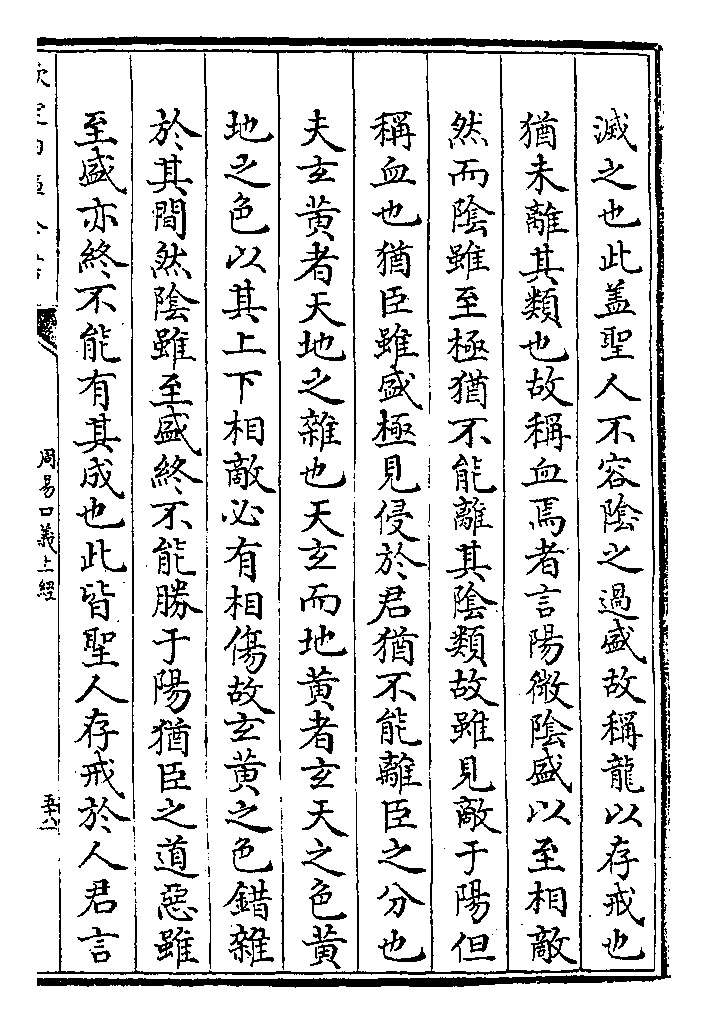 滅之也此盖聖人不容陰之過盛故稱龍以存戒也
猶未離其類也故稱血焉者言陽微陰盛以至相敵
然而陰雖至極猶不能離其陰類故雖見敵于陽但
稱血也猶臣雖盛極見侵於君猶不能離臣之分也
夫玄黄者天地之雜也天玄而地黄者玄天之色黄
地之色以其上下相敵必有相傷故玄黄之色錯雜
於其間然陰雖至盛終不能勝于陽猶臣之道惡雖
至盛亦終不能有其成也此皆聖人存戒於人君言
欽定四庫全書
周易口義上經
五十八